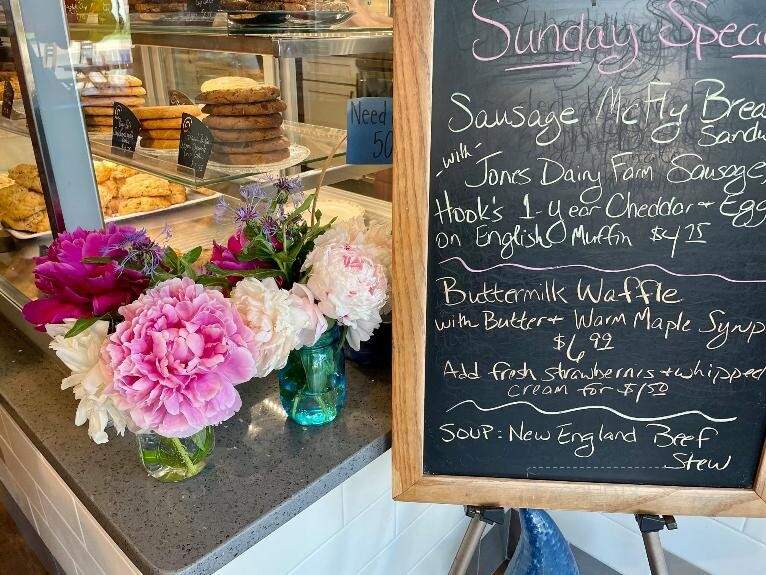 Sunday Spec
Sausage McFly Brea
Sandw
-with-
Jones Dairy Farm Sausage,
Hook's 1-year Cheddar + Egg
on English Muffin $4.25
Buttermilk Waffle
with Butter + Warm Maple Syrup
$6.99
Add fresh strawberries + whipped
cream for $1.50
SOUP: New England Beef
Stew
Need
50